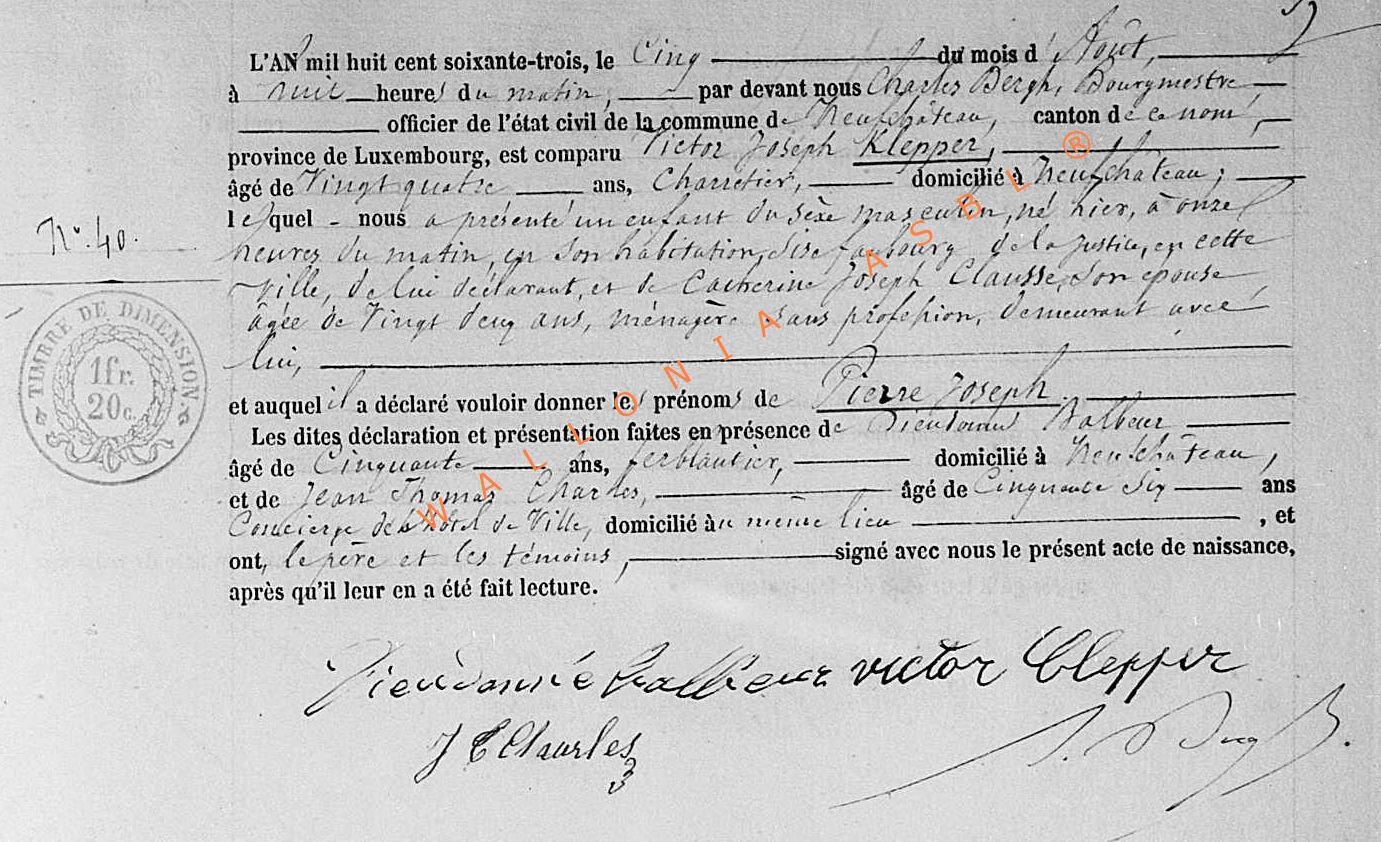 L'AN mil huit cent soixante-trois, le Cinq du mois d'Août,
à huit heures du matin, par devant nous Charles Bergh, Bourgmestre
officier de l'état civil de la commune de Neufchâteau, canton de ce nom,
province de Luxembourg, est comparu Victor Joseph Klepper,
âgé de Vingt quatre ans, Charretier, domicilié à Neufchâteau,
lequel nous a présenté un enfant du sèxe masculin, né hier, à onze
N°. 40.
heures du matin, en son habitation, sise faubourg de la justice, en cette
Ville, de lui déclarant, et de Catherine Joseph Clausse, son épouse
âgée de Vingt deux ans, ménagère sans profession, demeurant avec
lui,
TIMBRE DE DIMENSION
1fr.
20c.
et auquel il a déclaré vouloir donner les prénoms de Pierre Joseph
Les dites déclaration et présentation faites en présence de Dieudonné Balbeur
âgé de Cinquante ans, ferblantier, domicilié à Neufchâteau,
et de Jean Thomas Charles, âgé de Cinquante Six ans
Concierge de l'hôtel de Ville, domicilié au même lieu , et
ont, le père et les témoins, signé avec nous le présent acte de naissance,
après qu'il leur en a été fait lecture.
Dieudonné Balbeur victor Clepper
J T Charles
WALLONIA ASBL ®